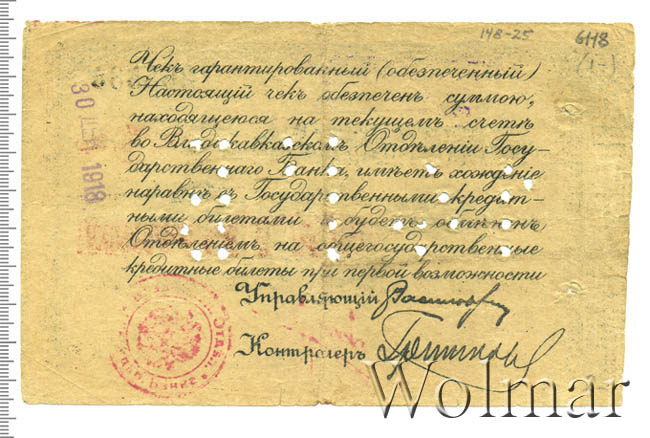 148-25
6448
(1-)
Чекъ гарантированный (обезпеченный)
Настоящій чекъ обезпеченъ суммою,
находящеюся на текущемъ счетѣ
во Владикавказскомъ Отдѣленіи Госу-
дарственнаго Банка, имѣетъ хожденіе
наравнѣ съ Государственными кредит-
ными билетами и будетъ обмѣненъ
Отдѣленіемъ на общегосударственные
кредитные билеты при первой возможности
Управляющій
Контролеръ
30 1918
Wolmar